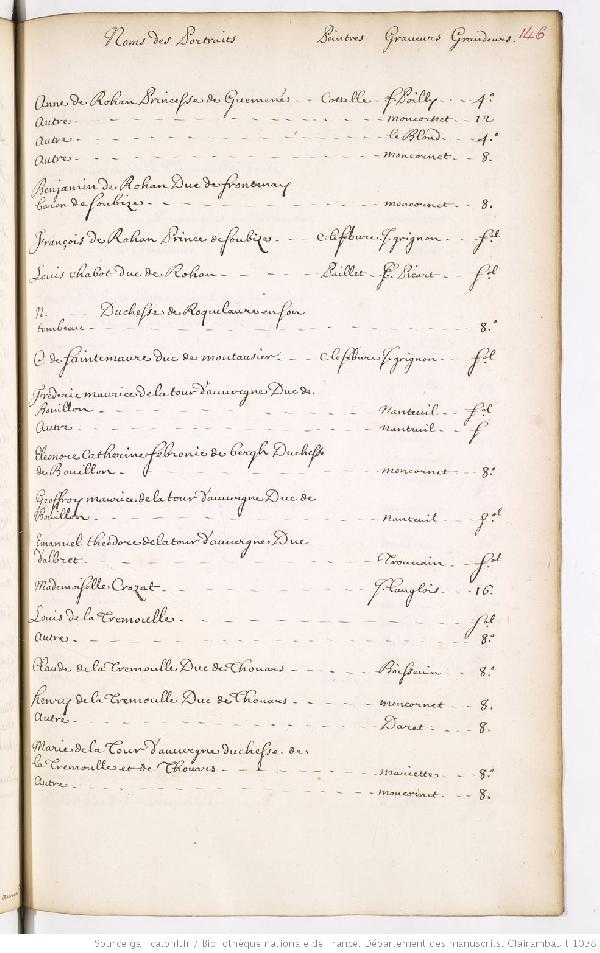 Noms des Portraits Peintres Graveurs Grandeurs. 146
Anne de Rohan Princesse de Guemené - - Cottelle - f. Poilly - - 4°
Autre - - - - moncornet - - 12
Autre - - - - le Blond - - 4°
Autre - - - - moncornet - - 8.
Benjamin de Rohan Duc de frontenay
baron de soubize - - - - moncornet - - 8.
françois de Rohan Prince de soubize - - c. lefebure J. grignon - - fol
Louis chabot duc de Rohan - - - - Paillet - E. Picart - - fol
N. - - Duchesse de Roquelaure en son
tombeau - - - - 8°
C. de sainte maure duc de montausier - - c. lefebure J. grignon - - fol
frederic maurice de la tour d'auvergne Duc de
Bouillon - - - - Nanteuil - - fol
Autre - - - - nanteuil - - f
Eleonore Catherine febronie de bergh Duchesse
de Bouillon - - - - moncornet - - 8°
Geoffroy maurice de la tour d'auvergne Duc de
Bouillon - - - - nanteuil - -
Emanuel theodore de la tour d'auvergne Duc
d'albret - - - - Trouvain - - fol
Mademoiselle Crozat - - - - J. Langlois - - 16.
Louis de la Tremoulle - - - - fol
Autre - - - - 8°
Claude de la Tremoulle Duc de Thouars - - - - Boissevin - - 8°
henry de la Tremoulle Duc de Thouars - - - - moncornet - - 8.
Autre - - - - Daret - - 8.
Marie de la Tour d'auvergne duchesse de
la Tremoulle et de Thouars - - - - mariette - - 8°
Autre - - - - moncornet - - 8.
Source gallica.bnf.fr / Bibliothèque nationale de France. Département des manuscrits. Clairambault 1038